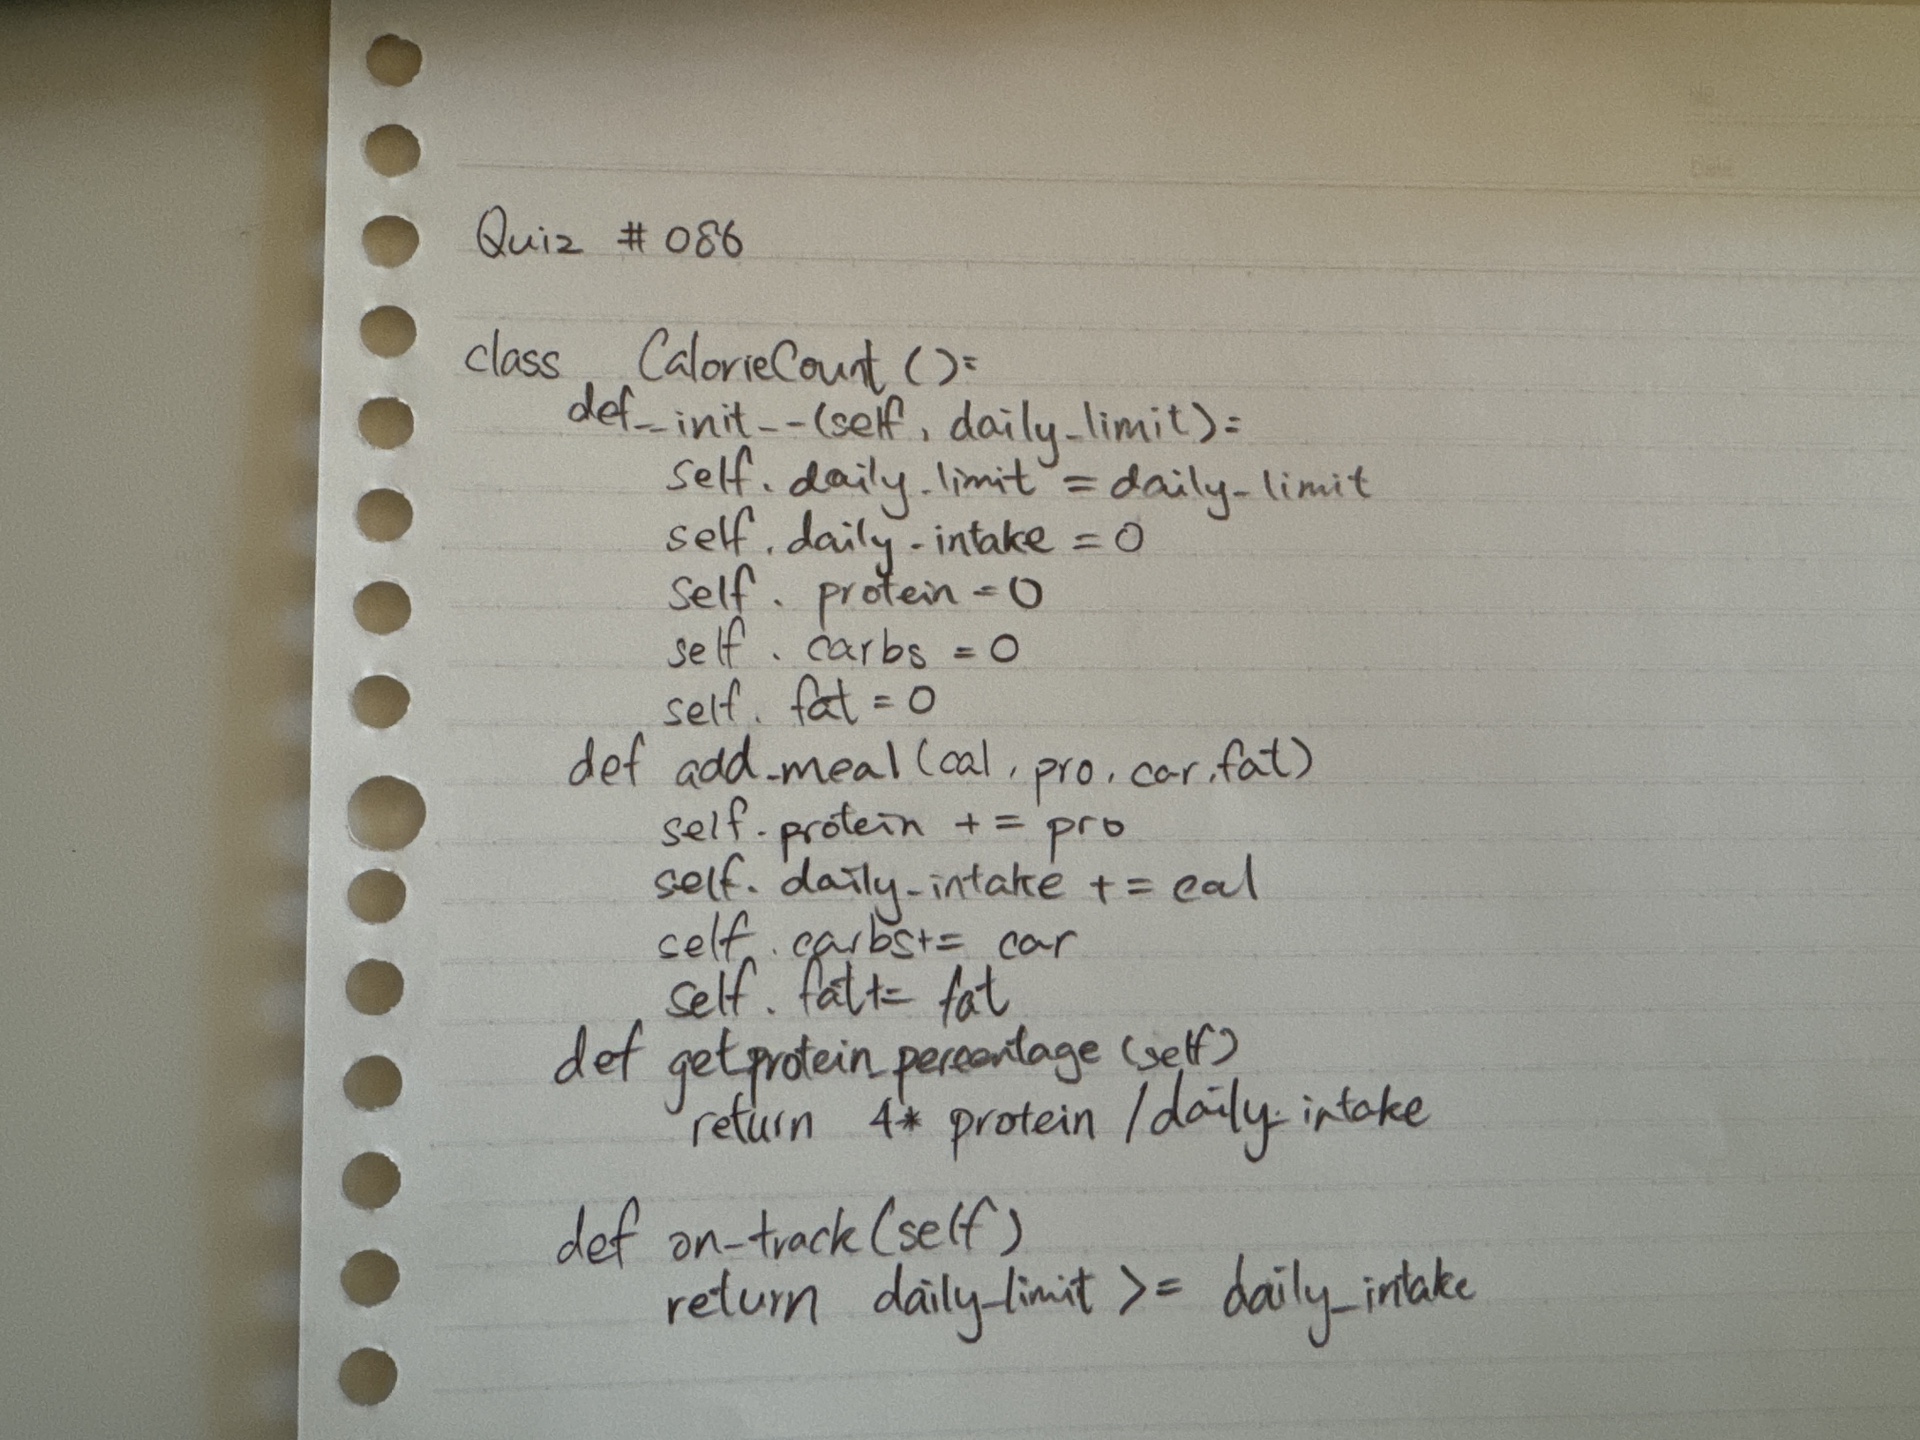 Quiz # 086
class CalorieCount ():
def __init__(self, daily_limit):
self.daily_limit = daily_limit
self.daily_intake = 0
self.protein = 0
self.carbs = 0
self.fat = 0
def add_meal(cal, pro, car, fat)
self.protein += pro
self.daily_intake += cal
self.carbs += car
self.fat += fat
def getprotein_percentage (self)
return 4* protein / daily_intake
def on_track(self)
return daily_limit >= daily_intake